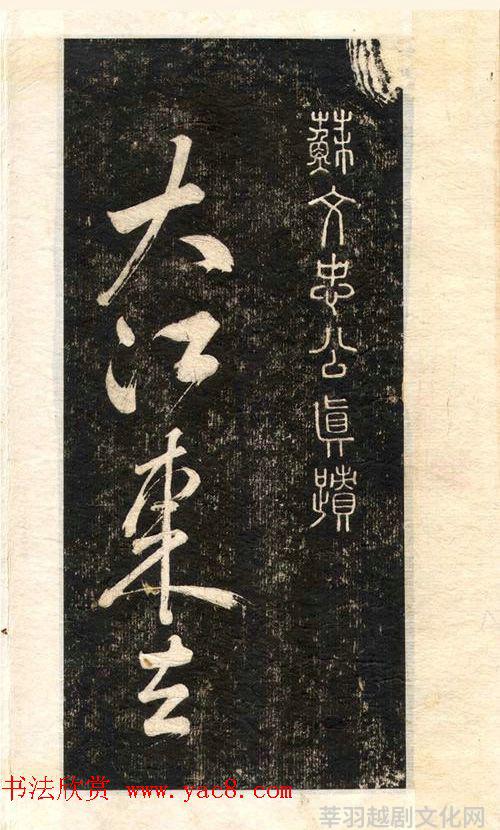 蘇文忠公眞蹟
大江東去
书法欣赏 www.yac8.com
莘羽越剧文化网